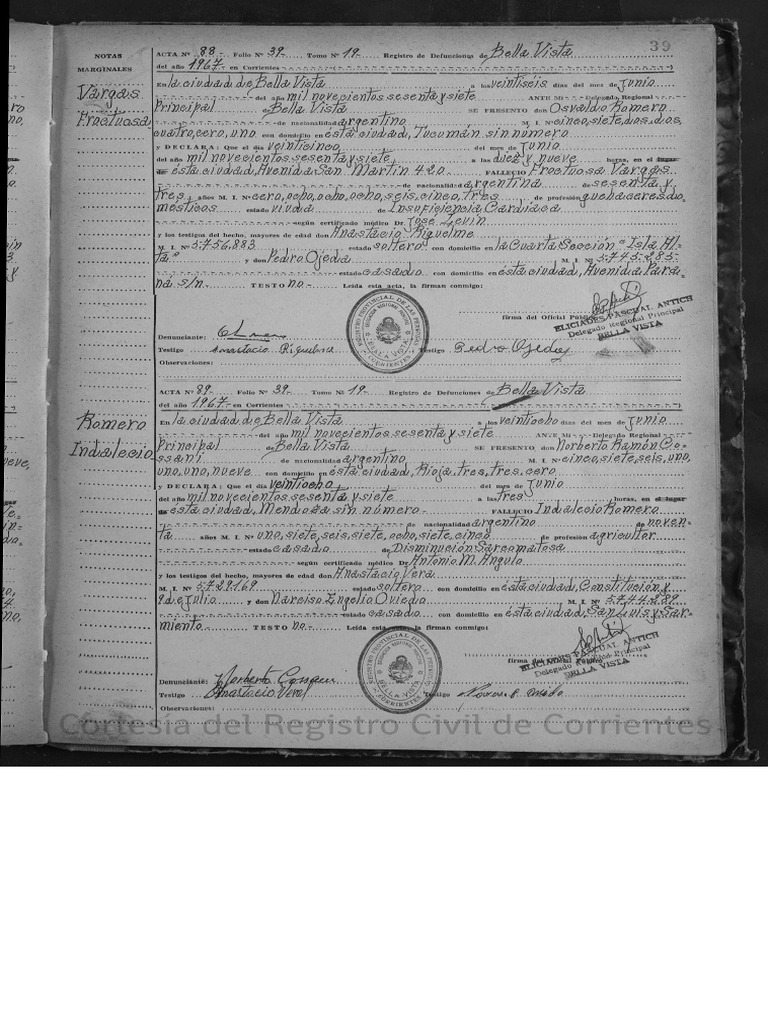 39
NOTAS
MARGINALES
Vargas
Fructuosa
ACTA Nº 88.- Folio Nº 39.- Tomo Nº 19.- Registro de Defunciones de Bella Vista
del año 1967.- en Corrientes
En la ciudad de Bella Vista a los veintiseis días del mes de Junio
del año mil novecientos sesenta y siete ANTE MI Delegado Regional
Principal de Bella Vista SE PRESENTO don Osvaldo Romero
de nacionalidad argentino M. I. Nº cinco, siete, dos, dos,
cuatro, cero, uno con domicilio en ésta ciudad, Tucumán sin número
y DECLARA: Que el día veinticinco del mes de Junio
del año mil novecientos sesenta y siete a las diez y nueve horas, en el lugar
de ésta ciudad, Avenida San Martin 420 FALLECIO Fructuosa Vargas
de nacionalidad argentina de sesenta y
tres años M. I. Nº cero, ocho, ocho, ocho, seis, cinco, tres de profesión quehaceres do-
mésticos estado viuda de Insuficiencia Cardiaca
según certificado médico Dr Jose Levin
y los testigos del hecho, mayores de edad don Anastacio Riquelme
M. I. Nº 5.756.883 estado soltero con domicilio en la Cuarta Sección "Isla Al-
ta" y don Pedro Ojeda M. I. Nº 5.745.285
estado casado con domicilio en ésta ciudad, Avenida Para-
ná s/n. TESTO no.- Leída esta acta, la firman conmigo:
firma del Oficial Público
ELICIADES PASCUAL ANTICH
Delegado Regional Principal
BELLA VISTA
REGISTRO PROVINCIAL DE LAS PERSONAS
BELLA VISTA
CORRIENTES
Denunciante:
Testigo Anastacio Riquelme Testigo Pedro Ojeda
Observaciones:
Romero
Indalecio
ACTA Nº 89.- Folio Nº 39.- Tomo Nº 19.- Registro de Defunciones de Bella Vista
del año 1967.- en Corrientes
En la ciudad de Bella Vista a los veintiocho días del mes de Junio
del año mil novecientos sesenta y siete ANTE MI Delegado Regional
Principal de Bella Vista SE PRESENTO don Norberto Ramón Co-
ssani de nacionalidad argentino M. I. Nº cinco, siete, seis, uno,
uno, uno, nueve con domicilio en ésta ciudad, Rioja, tres, tres, cero
y DECLARA: Que el día veintiocho del mes de Junio
del año mil novecientos sesenta y siete a las tres horas, en el lugar
de ésta ciudad, Mendoza sin número FALLECIO Indalecio Romero
de nacionalidad argentino de noven-
ta años M. I. Nº uno, siete, seis, siete, ocho, siete, cinco de profesión agricultor
estado casado de Disminución Sarcomatosa
según certificado médico Dr Antonio M. Angulo
y los testigos del hecho, mayores de edad don Anastacio Vera
M. I. Nº 5.729.169 estado soltero con domicilio en ésta ciudad, Constitución y
9 de Julio y don Narciso Engelio Oviedo M. I. Nº 5.744.829
estado casado con domicilio en ésta ciudad, San Luis y Sar-
miento TESTO no.- Leída esta acta, la firman conmigo:
firma del Oficial Público
ELICIADES PASCUAL ANTICH
Delegado Regional Principal
BELLA VISTA
REGISTRO PROVINCIAL DE LAS PERSONAS
BELLA VISTA
CORRIENTES
Denunciante: Norberto Cossani
Testigo Anastacio Vera Testigo
Observaciones:
Cortesía del Registro Civil de Corrientes